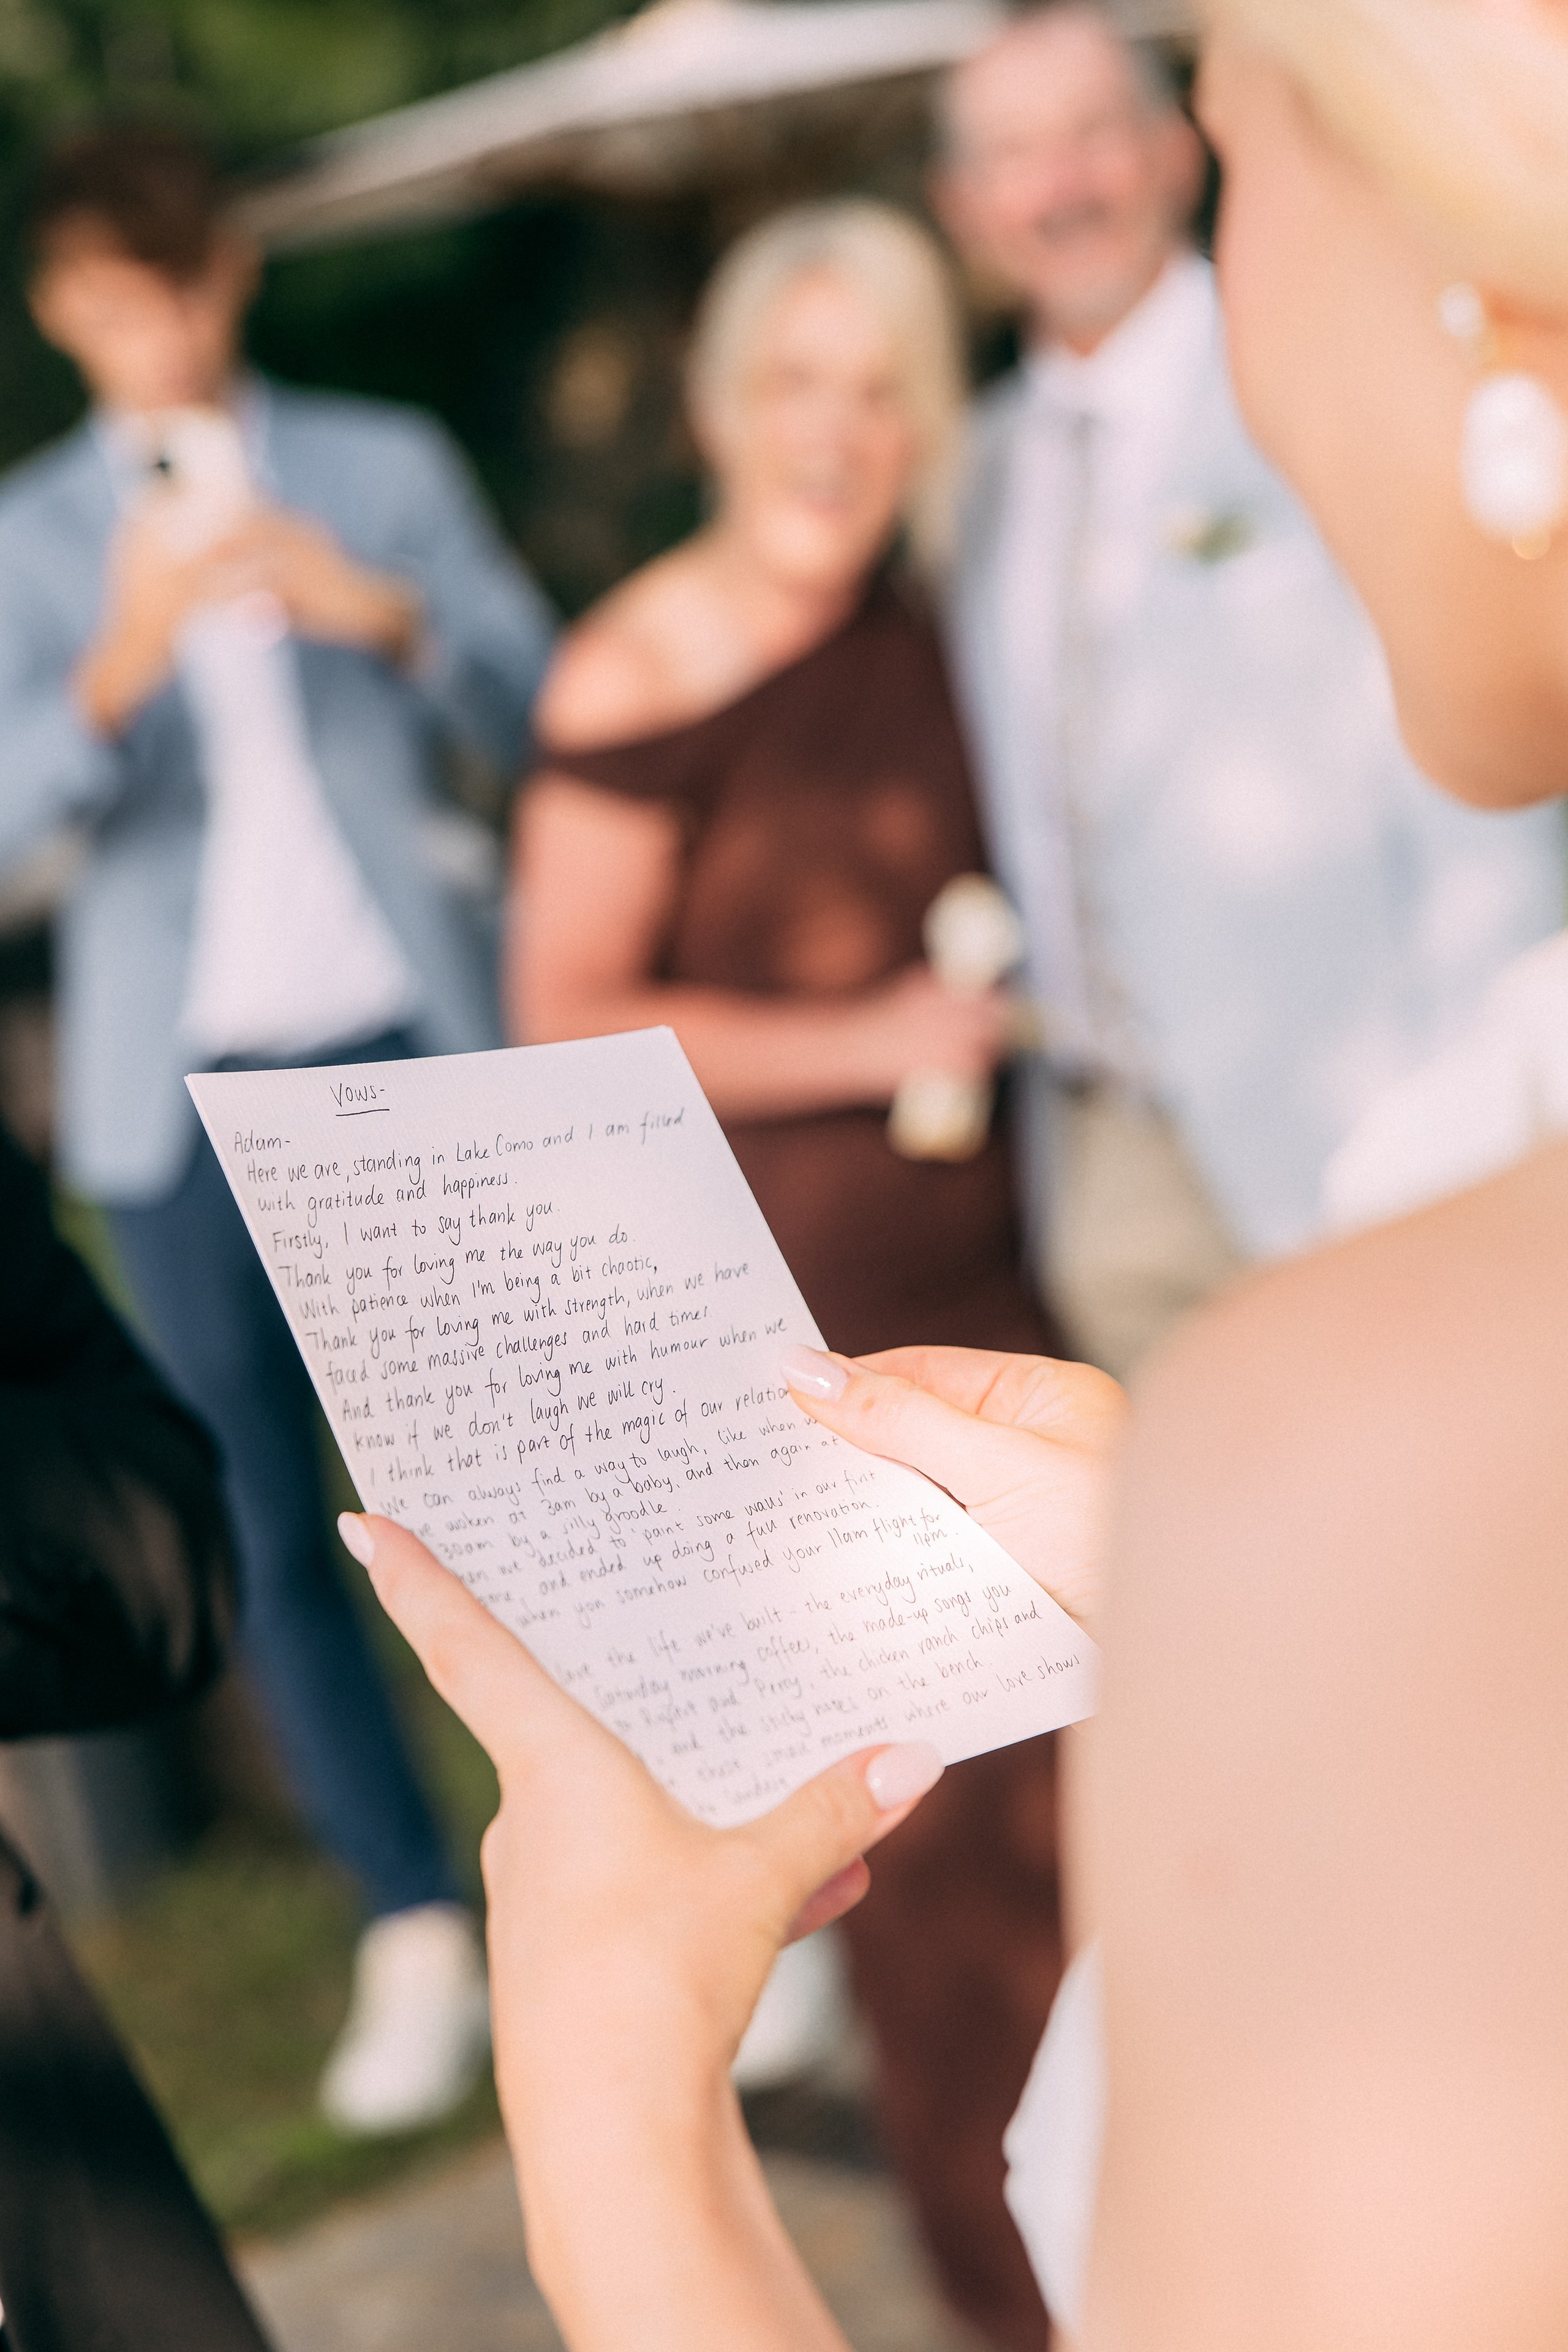 Vows-
Adam-
Here we are, standing in Lake Como and I am filled
with gratitude and happiness.
Firstly, I want to say thank you.
Thank you for loving me the way you do.
With patience when I'm being a bit chaotic,
Thank you for loving me with strength, when we have
faced some massive challenges and hard times.
And thank you for loving me with humour when we
know if we don't laugh we will cry.
I think that is part of the magic of our
We can always find a way to laugh, like when
woken at 3am by a baby, and then again at
30am by a silly groodle.
we decided to 'paint some walls' in our first
and ended up doing a full renovation.
when you somehow confused your 11am flight for
11pm.
the life we've built - the everyday rituals,
Saturday morning coffees, the made-up songs you
Rupert and Percy, the chicken ranch chips and
and the sticky notes on the bench.
these small moments where our love shows